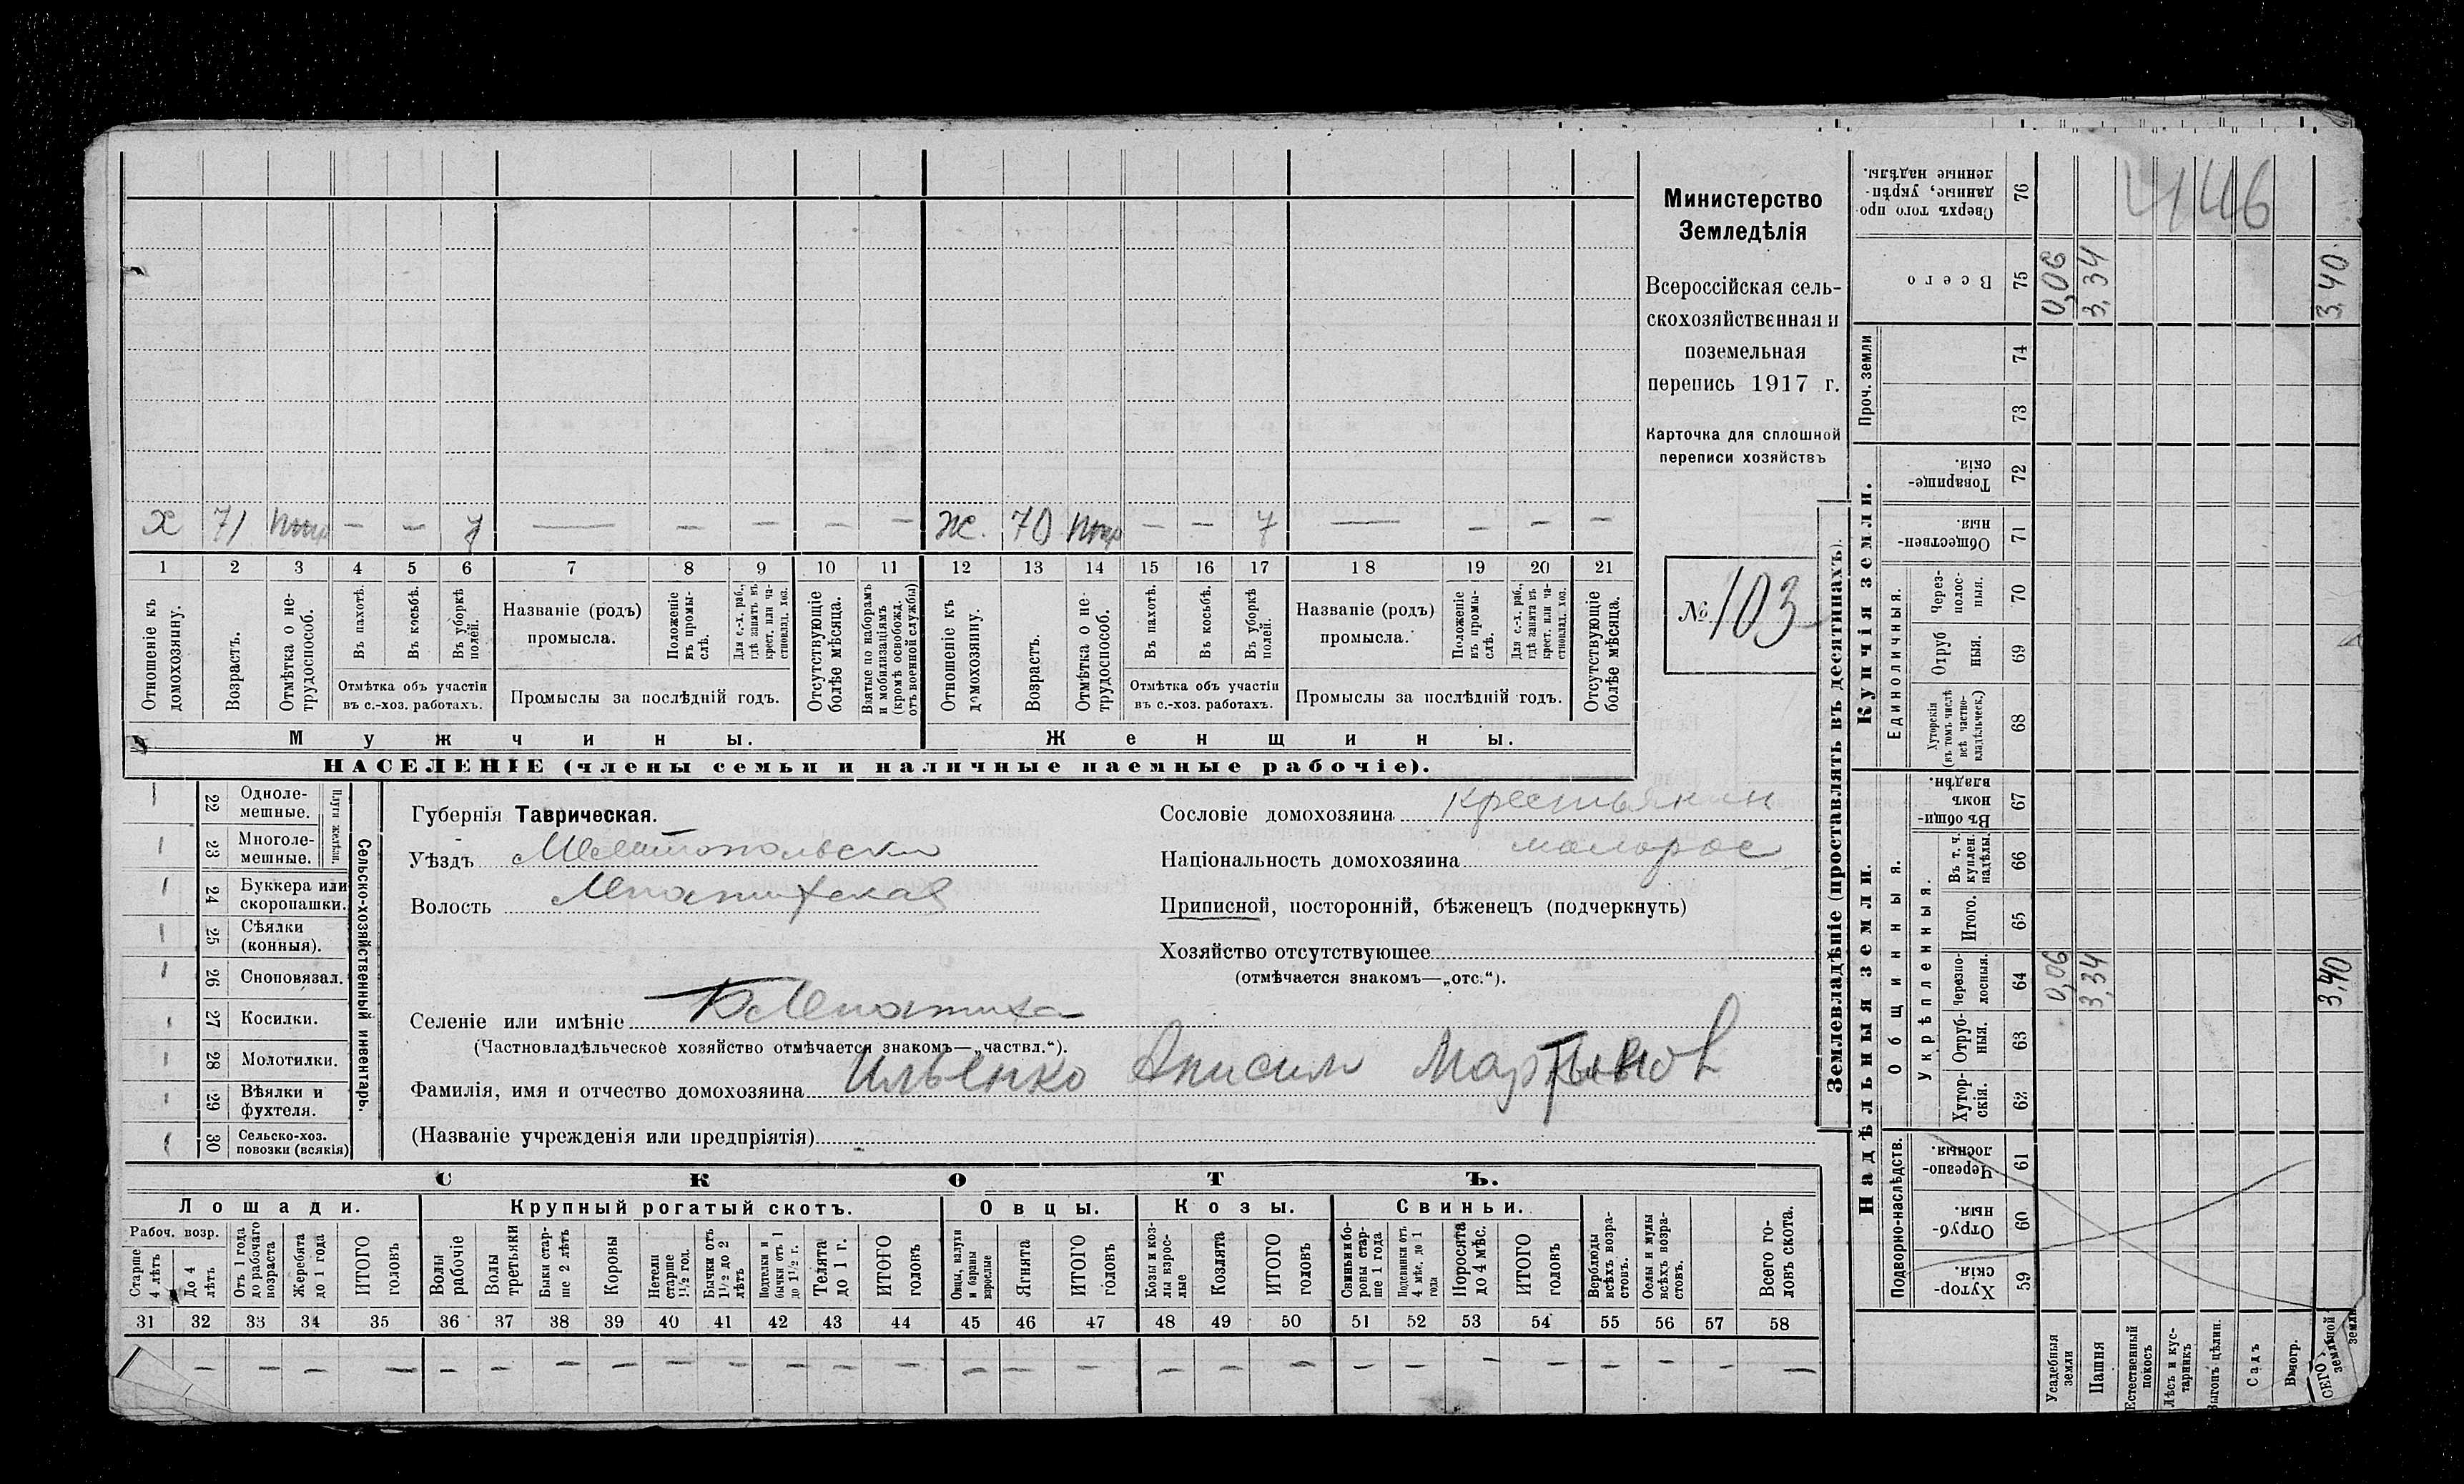 х 71 — — 7 — — — — — ж. 70 — — 7 — — — —
1 2 3 4 5 6 7 8 9 10 11 12 13 14 15 16 17 18 19 20 21
Отношеніе къ домохозяину.
Возрастъ.
Отмѣтка о нетрудоспособ.
Въ пахотѣ.
Въ косьбѣ.
Въ уборкѣ полей.
Отмѣтка объ участіи
въ с.-хоз. работахъ.
Названіе (родъ)
промысла.
Положеніе въ промыслѣ.
Для с.-х. раб., гдѣ занятъ въ крест. или частновлад. хоз.
Промыслы за послѣдній годъ.
Отсутствующіе болѣе мѣсяца.
Взятые по наборамъ и мобилизаціямъ (кромѣ освобожд. отъ военной службы)
Отношеніе къ домохозяину.
Возрастъ.
Отмѣтка о нетрудоспособ.
Въ пахотѣ.
Въ косьбѣ.
Въ уборкѣ полей.
Отмѣтка объ участіи
въ с.-хоз. работахъ.
Названіе (родъ)
промысла.
Положеніе въ промыслѣ.
Для с.-х. раб., гдѣ занята въ крест. или частновлад. хоз.
Промыслы за послѣдній годъ.
Отсутствующіе болѣе мѣсяца.
Мужчины. Женщины.
НАСЕЛЕНІЕ (члены семьи и наличные наемные рабочіе).
Министерство
Земледѣлія
Всероссійская сель-
скохозяйственная и
поземельная
перепись 1917 г.
Карточка для сплошной
переписи хозяйствъ
№ 103
22 Однолемешные.
23 Многолемешные.
Плуги желѣзн.
24 Буккера или скоропашки.
25 Сѣялки (конныя).
26 Сноповязал.
27 Косилки.
28 Молотилки.
29 Вѣялки и фухтеля.
30 Сельско-хоз. повозки (всякія)
Сельско-хозяйственный инвентарь.
Губернія Таврическая.
Уѣздъ Мелитопольски
Волость
Селеніе или имѣніе
(Частновладѣльческое хозяйство отмѣчается знакомъ—„частвл.“).
Фамилія, имя и отчество домохозяина Ильенко Анисим Мартынов
(Названіе учрежденія или предпріятія)
Сословіе домохозяина крестьянин
Національность домохозяина малорос
Приписной, посторонній, бѣженецъ (подчеркнуть)
Хозяйство отсутствующее
(отмѣчается знакомъ—„отс.“).
СКОТЪ.
Лошади. Крупный рогатый скотъ. Овцы. Козы. Свиньи.
Рабоч. возр.
Старше 4 лѣтъ
До 4 лѣтъ
Отъ 1 года до рабочаго возраста
Жеребята до 1 года
ИТОГО головъ
Волы рабочіе
Волы третьяки
Быки старше 2 лѣтъ
Коровы
Нетели старше 1½ год.
Бычки отъ 1½ до 2 лѣтъ
Подтелки и бычки отъ 1 до 1½ г.
Телята до 1 г.
ИТОГО головъ
Овцы, валухи и бараны взрослые
Ягнята
ИТОГО головъ
Козы и козлы взрослые
Козлята
ИТОГО головъ
Свиньи и боровы старше 1 года
Подсвинки отъ 4 мѣс. до 1 года
Поросята до 4 мѣс.
ИТОГО головъ
Верблюды всѣхъ возрастовъ.
Ослы и мулы всѣхъ возрастовъ.
Всего головъ скота.
31 32 33 34 35 36 37 38 39 40 41 42 43 44 45 46 47 48 49 50 51 52 53 54 55 56 57 58
Землевладѣніе (проставлять въ десятинахъ).
Надѣльныя земли. Купчія земли. Проч. земли
Подворно-наслѣдств.
Общинныя.
Укрѣпленныя.
Единоличныя.
Хуторскія. 59
Отрубныя. 60
Черезполосныя. 61
Хуторскія. 62
Отрубныя. 63
Черезполосныя. 64
Итого. 65
Въ т. ч. куплен. надѣлы. 66
Въ общинномъ владѣн. 67
Хуторскія (въ томъ числѣ всѣ частновладѣльческ.) 68
Отрубныя. 69
Черезполосныя. 70
Общественныя. 71
Товарищескія. 72
73
74
Всего 75
Сверхъ того проданные, укрѣпленные надѣлы. 76
Усадебныя земли 0,06 0,06
Пашня 3,34 3,34
Естественный покосъ
Лѣсъ и кустарникъ
Выгонъ цѣлин.
Садъ
Виногр.
3,40 3,40
446